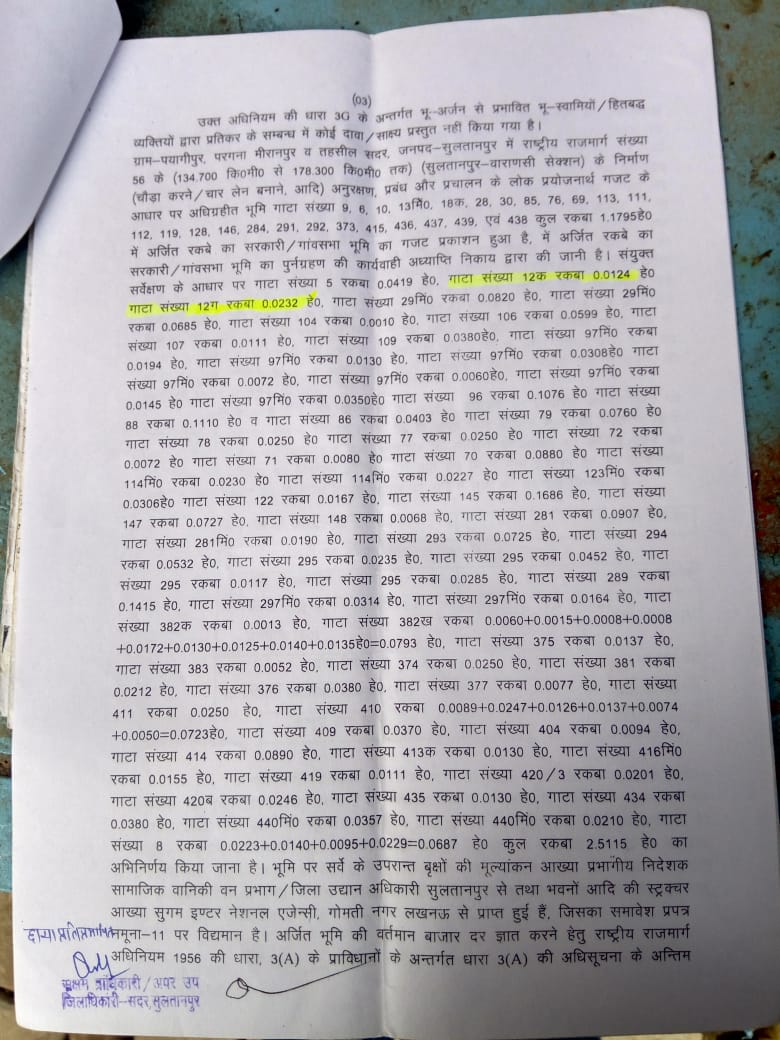 (03)
उक्त अधिनियम की धारा 3G के अन्तर्गत भू-अर्जन से प्रभावित भू-स्वामियों/हितबद्ध
व्यक्तियों द्वारा प्रतिकर के सम्बन्ध में कोई दावा/साक्ष्य प्रस्तुत नहीं किया गया है।
ग्राम-पयागीपुर, परगना मीरानपुर व तहसील सदर, जनपद-सुलतानपुर में राष्ट्रीय राजमार्ग संख्या
56 के (134.700 कि0मी0 से 178.300 कि0मी0 तक) (सुलतानपुर-वाराणसी सेक्शन) के निर्माण
(चौड़ा करने/चार लेन बनाने, आदि) अनुरक्षण, प्रबंध और प्रचालन के लोक प्रयोजनार्थ गजट के
आधार पर अधिग्रहीत भूमि गाटा संख्या 9, 6, 10, 13मि0, 18क, 28, 30, 85, 76, 69, 113, 111,
112, 119, 128, 146, 284, 291, 292, 373, 415, 436, 437, 439, एवं 438 कुल रकबा 1.1795हे0
में अर्जित रकबे का सरकारी/गांवसभा भूमि का गजट प्रकाशन हुआ है, में अर्जित रकबे का
सरकारी/गांवसभा भूमि का पुर्नग्रहण की कार्यवाही अध्याप्ति निकाय द्वारा की जानी है। संयुक्त
सर्वेक्षण के आधार पर गाटा संख्या 5 रकबा 0.0419 हे0, गाटा संख्या 12क रकबा 0.0124 हे0
गाटा संख्या 12ग रकबा 0.0232 हे0, गाटा संख्या 29मि0 रकबा 0.0820 हे0, गाटा संख्या 29मि0
रकबा 0.0685 हे0, गाटा संख्या 104 रकबा 0.0010 हे0, गाटा संख्या 106 रकबा 0.0599 हे0, गाटा
संख्या 107 रकबा 0.0111 हे0, गाटा संख्या 109 रकबा 0.0380हे0, गाटा संख्या 97मि0 रकबा
0.0194 हे0, गाटा संख्या 97मि0 रकबा 0.0130 हे0, गाटा संख्या 97मि0 रकबा 0.0308हे0 गाटा
संख्या 97मि0 रकबा 0.0072 हे0, गाटा संख्या 97मि0 रकबा 0.0060हे0, गाटा संख्या 97मि0 रकबा
0.0145 हे0 गाटा संख्या 97मि0 रकबा 0.0350हे0 गाटा संख्या 96 रकबा 0.1076 हे0 गाटा संख्या
88 रकबा 0.1110 हे0 व गाटा संख्या 86 रकबा 0.0403 हे0 गाटा संख्या 79 रकबा 0.0760 हे0
गाटा संख्या 78 रकबा 0.0250 हे0 गाटा संख्या 77 रकबा 0.0250 हे0 गाटा संख्या 72 रकबा
0.0072 हे0 गाटा संख्या 71 रकबा 0.0080 हे0 गाटा संख्या 70 रकबा 0.0880 हे0 गाटा संख्या
114मि0 रकबा 0.0230 हे0 गाटा संख्या 114मि0 रकबा 0.0227 हे0 गाटा संख्या 123मि0 रकबा
0.0306हे0 गाटा संख्या 122 रकबा 0.0167 हे0, गाटा संख्या 145 रकबा 0.1686 हे0, गाटा संख्या
147 रकबा 0.0727 हे0, गाटा संख्या 148 रकबा 0.0068 हे0, गाटा संख्या 281 रकबा 0.0907 हे0,
गाटा संख्या 281मि0 रकबा 0.0190 हे0, गाटा संख्या 293 रकबा 0.0725 हे0, गाटा संख्या 294
रकबा 0.0532 हे0, गाटा संख्या 295 रकबा 0.0235 हे0, गाटा संख्या 295 रकबा 0.0452 हे0, गाटा
संख्या 295 रकबा 0.0117 हे0, गाटा संख्या 295 रकबा 0.0285 हे0, गाटा संख्या 289 रकबा
0.1415 हे0, गाटा संख्या 297मि0 रकबा 0.0314 हे0, गाटा संख्या 297मि0 रकबा 0.0164 हे0, गाटा
संख्या 382क रकबा 0.0013 हे0, गाटा संख्या 382ख रकबा 0.0060+0.0015+0.0008+0.0008
+0.0172+0.0130+0.0125+0.0140+0.0135हे0=0.0793 हे0, गाटा संख्या 375 रकबा 0.0137 हे0,
गाटा संख्या 383 रकबा 0.0052 हे0, गाटा संख्या 374 रकबा 0.0250 हे0, गाटा संख्या 381 रकबा
0.0212 हे0, गाटा संख्या 376 रकबा 0.0380 हे0, गाटा संख्या 377 रकबा 0.0077 हे0, गाटा संख्या
411 रकबा 0.0250 हे0, गाटा संख्या 410 रकबा 0.0089+0.0247+0.0126+0.0137+0.0074
+0.0050=0.0723हे0, गाटा संख्या 409 रकबा 0.0370 हे0, गाटा संख्या 404 रकबा 0.0094 हे0,
गाटा संख्या 414 रकबा 0.0890 हे0, गाटा संख्या 413क रकबा 0.0130 हे0, गाटा संख्या 416मि0
रकबा 0.0155 हे0, गाटा संख्या 419 रकबा 0.0111 हे0, गाटा संख्या 420/3 रकबा 0.0201 हे0,
गाटा संख्या 420ब रकबा 0.0246 हे0, गाटा संख्या 435 रकबा 0.0130 हे0, गाटा संख्या 434 रकबा
0.0380 हे0, गाटा संख्या 440मि0 रकबा 0.0357 हे0, गाटा संख्या 440मि0 रकबा 0.0210 हे0, गाटा
संख्या 8 रकबा 0.0223+0.0140+0.0095+0.0229=0.0687 हे0 कुल रकबा 2.5115 हे0 का
अभिनिर्णय किया जाना है। भूमि पर सर्वे के उपरान्त बृक्षों की मूल्यांकन आख्या प्रभागीय निदेशक
सामाजिक वानिकी वन प्रभाग/जिला उद्यान अधिकारी सुलतानपुर से तथा भवनों आदि की स्ट्रक्चर
आख्या सुगम इण्टर नेशनल एजेन्सी, गोमती नगर लखनऊ से प्राप्त हुई हैं, जिसका समावेश प्रपत्र
नमूना-11 पर विद्यमान है। अर्जित भूमि की वर्तमान बाजार दर ज्ञात करने हेतु राष्ट्रीय राजमार्ग
अधिनियम 1956 की धारा, 3(A) के प्राविधानों के अन्तर्गत धारा 3(A) की अधिसूचना के अन्तिम
सक्षम प्राधिकारी/अपर उप
जिलाधिकारी-सदर, सुलतानपुर